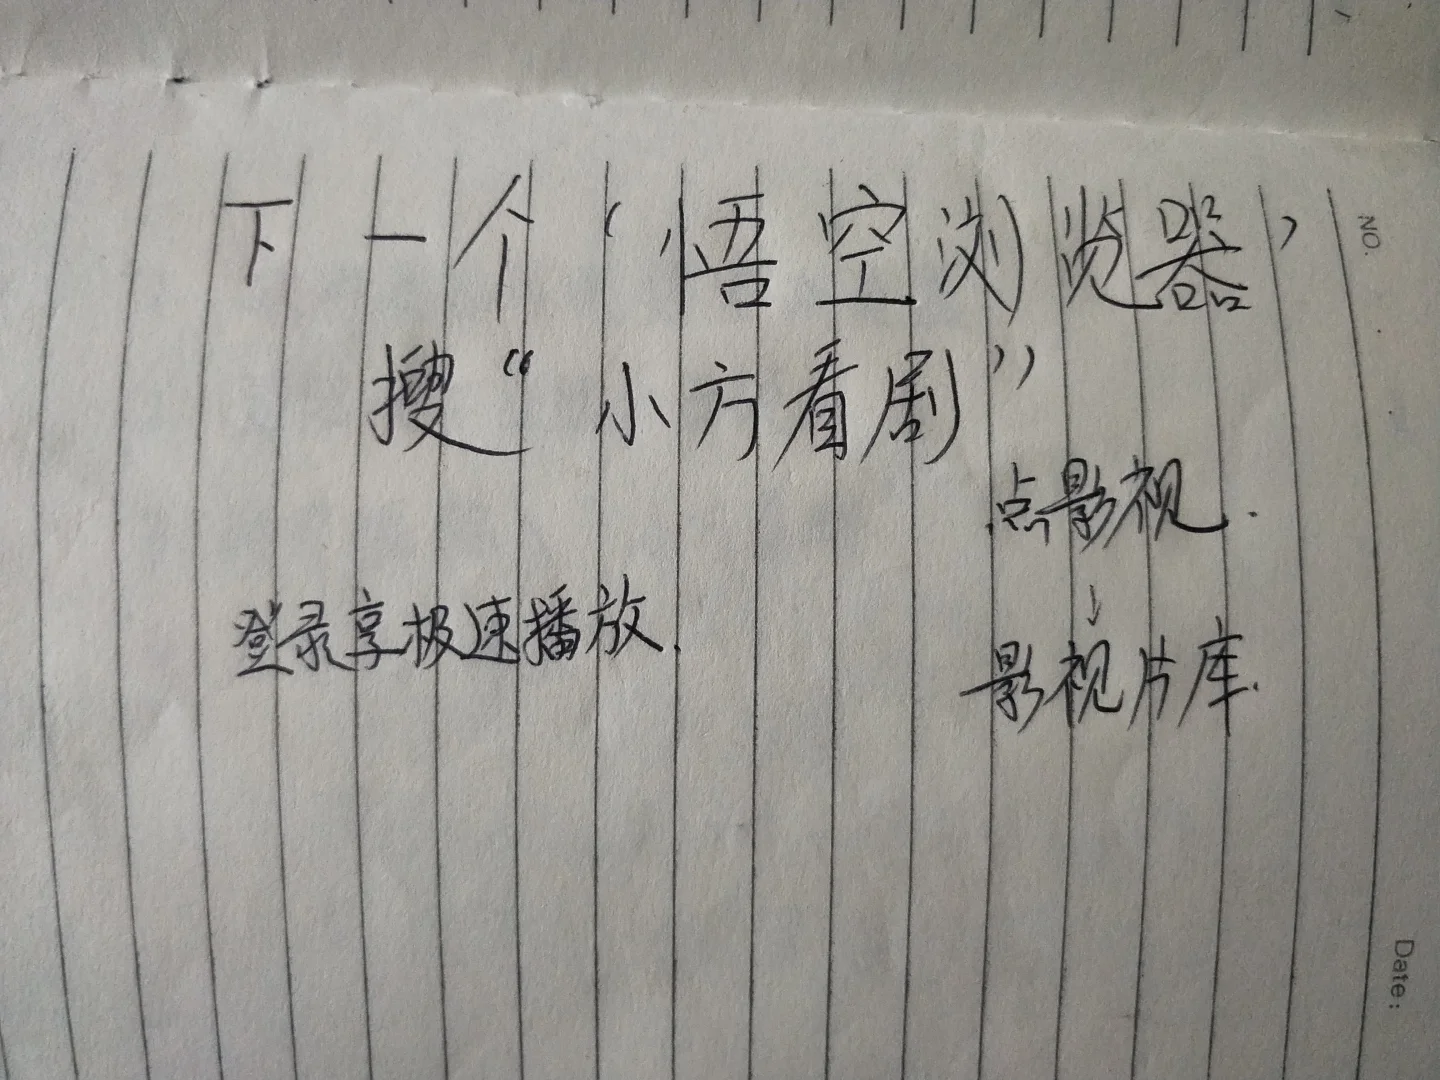 下一个“悟空浏览器”
搜“小方看剧”
点影视.
↓
影视片库.
登录享极速播放.
NO.
Date: